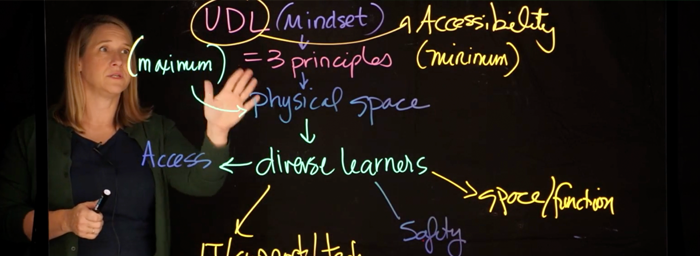 UDL (mindset) Accessibility
(maximum) = 3 principles (minimum)
physical space
Access diverse learners
space/function
Safety
IT/support/